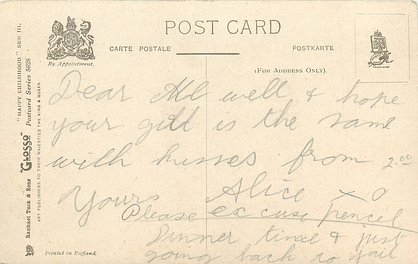 POST CARD
CARTE POSTALE
POSTKARTE
(FOR ADDRESS ONLY)
By Appointment.
"HAPPY CHILDHOOD" SER III.
"GLOSSO" Postcard Series 5028
Raphael Tuck & Sons
ART PUBLISHERS TO THEIR MAJESTIES THE KING & QUEEN
Dear All well & hope
your gill is the same
with kisses from 2.00
Yours Alice x o
Please excuse pencil
Dinner time & just
going back to
Printed in England.